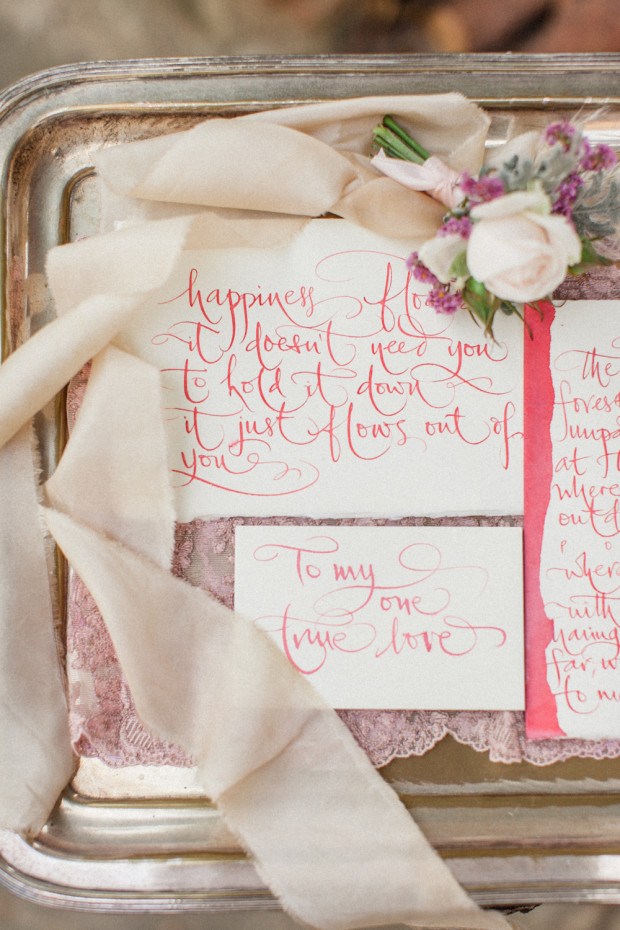 happiness flo
it doesn't need you
to hold it down
it just flows out of
you
To my
one
true love
The
fores
at
where
out
wher
with
having
far, w
to